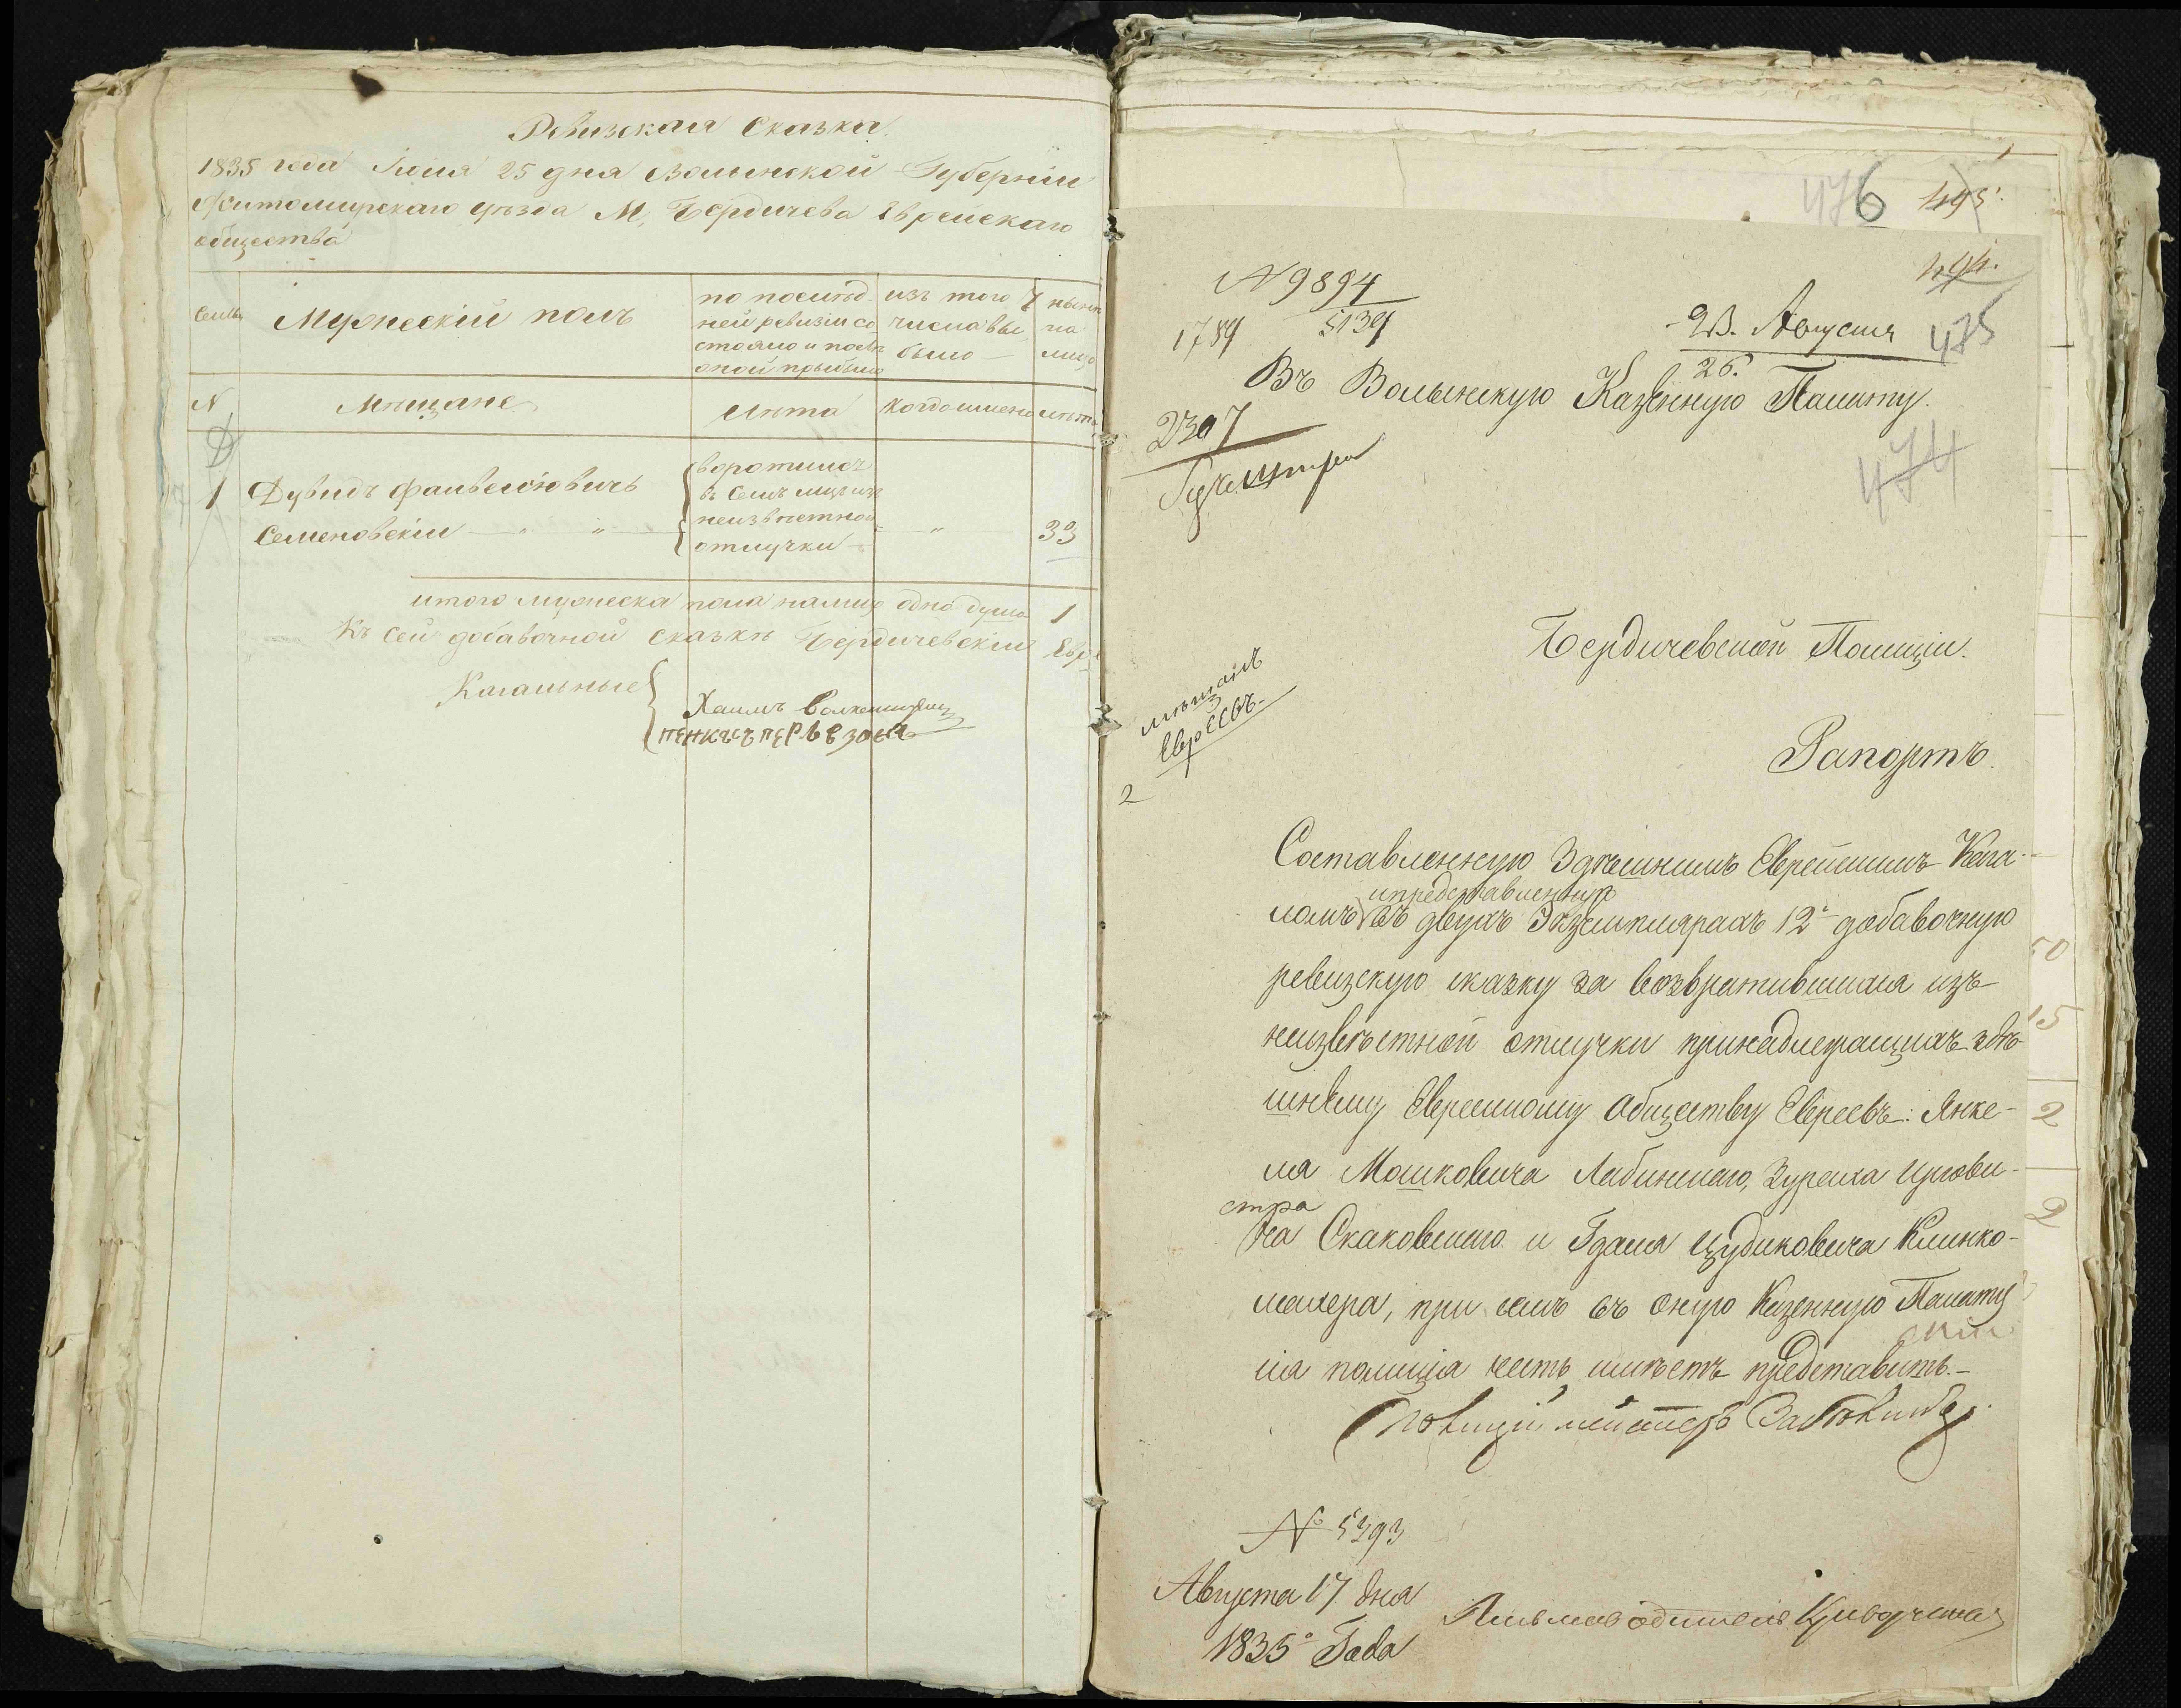 Ревизская Сказка.
1835 года Июля 25 дня Волынской Губернии
Житомирскаго уѣзда М. Бердичева Еврейскаго
общества
Семьи
Мужескій полъ
по послѣд-
ней ревизіи со
стояло и послѣ
оной прибыло
изъ того
числа вы
было
нынѣ
на
лицо
N
Мѣщане
Лѣта
когда имено
лѣта
1 Дувидъ Файвелювичъ
Семеновскій
воротился
въ семъ
неизвѣстной
отлучки
33
итого мужеска пола на лицо одна душа 1
Къ сей добавочной сказкѣ Бердичевскіе Евре
Кагальные
Хаимъ
476 495
494.
N 9894
5139
1789
23. Августа
26.
475
Въ Волынскую Казенную Палату.
2307
474
Бердичевской Полиціи.
мѣщанъ
Евреевъ.
2
Рапортъ.
Составленную Здѣшнимъ Еврейскимъ Кага-
и представленную
ломъ въ двухъ Экземплярахъ 12ю добавочную
ревизскую сказку за возвратившихся изъ
неизвѣстной отлучки принадлежащихъ здѣ-
шнѣму Еврейскому Обществу Евреевъ: Янке-
ля Мошковича Лабинскаго,
стра
Скаковскаго и Гдаля Цудиковича Клинко-
махера, при семъ въ оную Казенную Палату
сія полиція честь имѣетъ представить.
50
15
2
2
Полиціймейстеръ
№ 5393
Августа 17 дня
1835 Года
Письмоводитель